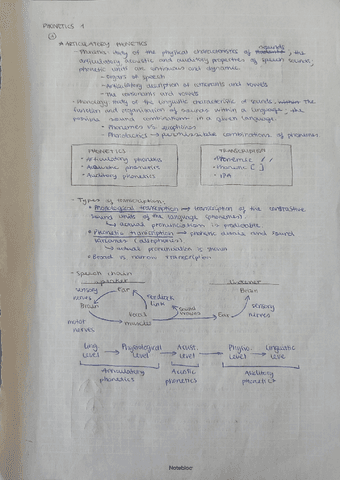 PHONETICS 1
①
* ARTICULATORY PHONETICS
- Phonetics: study of the physical characteristics of sounds, the
articulatory, acoustic and auditory properties of speech sounds,
phonetic units are continuous and dynamic.
- Organs of speech
- Articulatory description of consonants and vowels
- The consonants and vowels
- Phonology: study of the linguistic characteristic of sounds, within the
function and organisation of sounds within a language, the
possible sound combinations in a given language.
- Phonemes vs allophones
- Phonotactics → permissible combinations of phonemes
PHONETICS
- Articulatory phonetics
- Acoustic phonetics
- Auditory phonetics
TRANSCRIPTION
- Phonemic / /
- Phonetic [ ]
- IPA
- Types of transcription:
• Phonological transcription → transcription of the contrastive
sound units of the language (phonemes)
↳ actual pronunciation is predictable
• Phonetic transcription → phonetic details and sound
variations (allophones)
↳ actual pronunciation is shown
• Broad vs narrow transcription
- Speech chain
Speaker
Listener
sensory
nerves
Ear
Feedback
link
Brain
Brain
motor
nerves
Vocal
muscles
sound
waves
Ear
sensory
nerves
Ling.
level → Physiological
level → Acoust.
level → Physio.
level → Linguistic
level
Articulatory
phonetics
Acoustic
phonetics
Auditory
phonetics
Notebloc